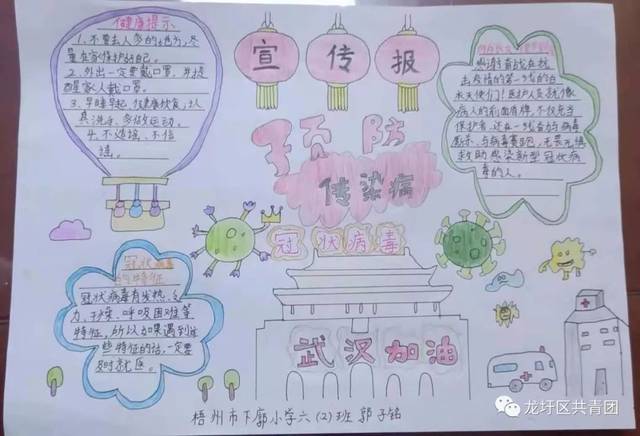 健康提示
1、不要去人多的地方,尽
量在家保护好自己。
2、外出一定要戴口罩,并提
醒家人戴口罩。
3、早睡早起,健康饮食,认
真洗手、多做运动。
4、不造谣、不信
谣。
宣传报
预防
传染病
冠状病毒
武汉加油
感谢奋战在抗
击疫情的第一线的白
衣天使们!医护人员就像
病人的前面盾牌,不仅充当
保护者,还在一线奋战与病毒
厮杀、与病毒赛跑,无畏无惧
救助感染新型冠状病
毒的人。
冠状病毒
的特征
冠状病毒有发热、乏
力、干咳、呼吸困难等
特征,所以如果遇到这
些特征的话,一定要
及时就医。
梧州市下廓小学六(2)班 郭子铭
龙圩区共青团